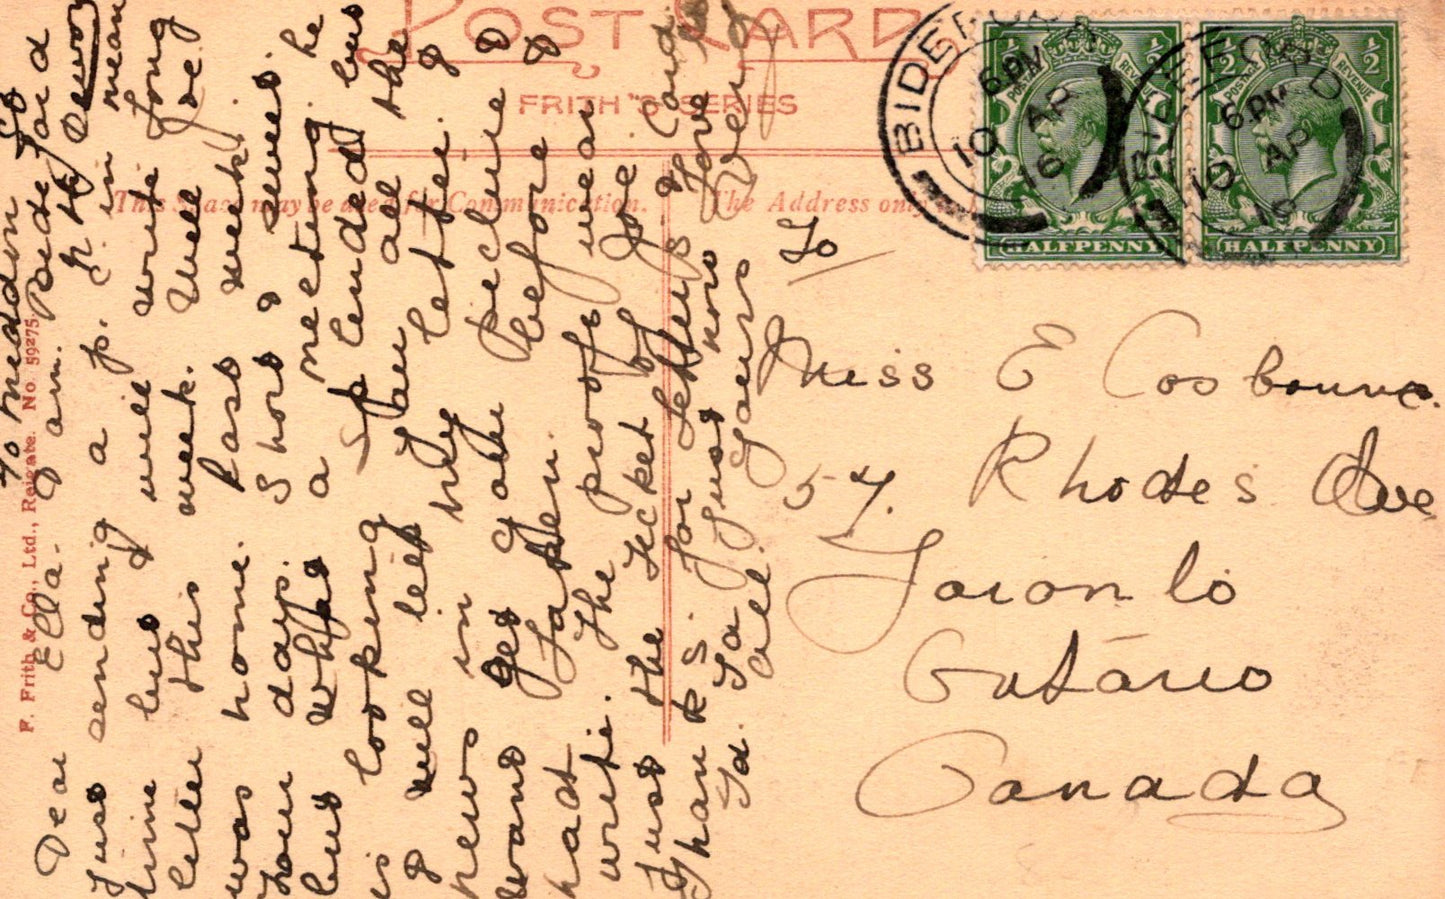 POST CARD
FRITH'S SERIES
This Space may be used for Communication.
The Address only
F. Frith & Co., Ltd., Reigate. No. 59275.
BIDEFORD
6.PM
10 AP
16
BIDEFORD
6.PM
10 AP
16
POSTAGE REVENUE
½ ½
HALFPENNY
POSTAGE REVENUE
½ ½
HALFPENNY
To
Miss E Cosbourne.
57. Rhodes Ave
Toronto
Ontario
Canada
Dear Ella. I am.
Just sending a p. c in mean
time but will write long
letter this week. Well Joe.
was home last week.
four days. Short & sweet.
but what a meeting he
is looking splended but
I will tell you all the
news in my letter. I
want get your picture &
had taken. before I
write. The proofs wear
Just the ticket of Joe.
Thanks. for letters & Card
Ta. Ta Just now love to
all. Yours